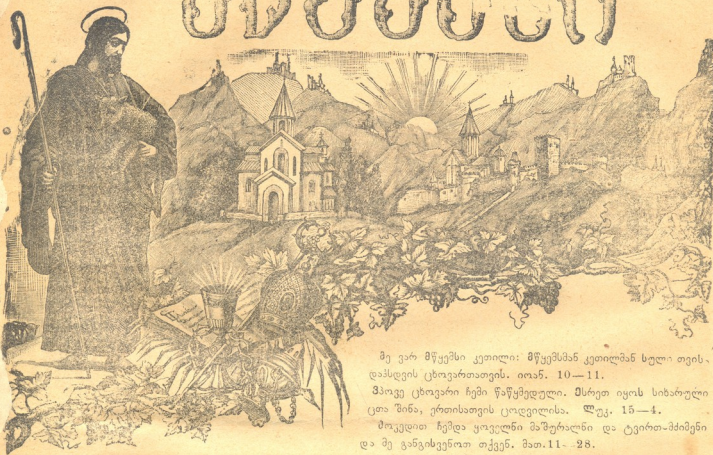 მწყემსი
მე ვარ მწყემსი კეთილი: მწყემსმან კეთილმან სული თვის-
დაჰსდვის ცხოვართათვის. იოან. 10—11.
ვჰპოვე ცხოვარი ჩემი წაწყმედული. ესრეთ იყოს სიხარული
ცთა შინა, ერთისათვის ცოდვილისა. ლუკ. 15—4.
მოვედით ჩემდა ყოველნი მაშურალნი და ტვირთ-მძიმენი
და მე განგისვენოთ თქვენ. მათ.11--28.